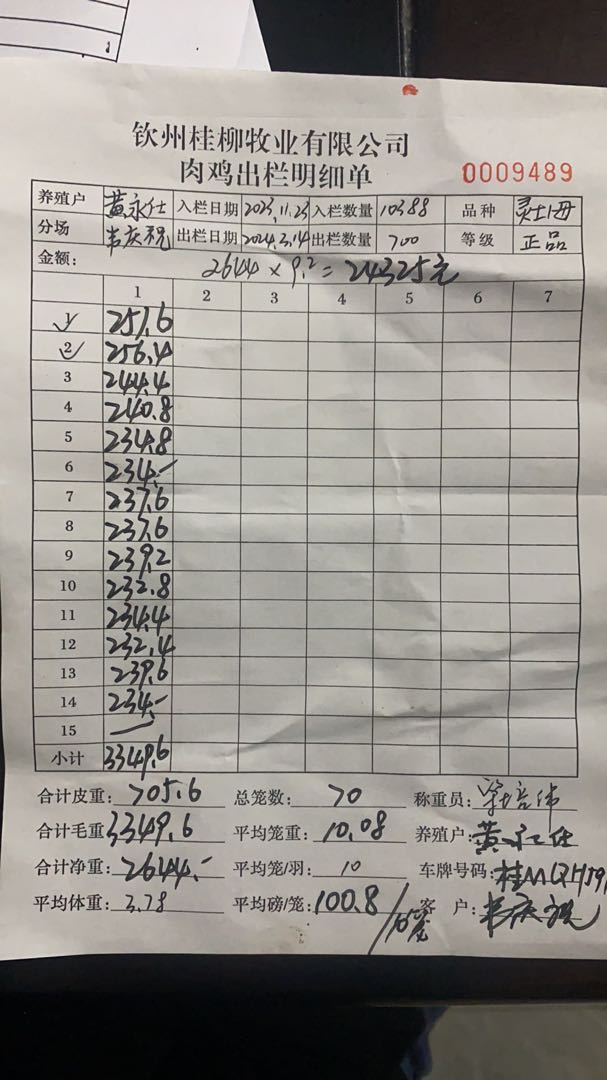 1
钦州桂柳牧业有限公司
肉鸡出栏明细单 0009489
养殖户 黄永仕 入栏日期 2023.11.23 入栏数量 10388 品种 灵山母
分场 韦庆祝 出栏日期 2024.3.14 出栏数量 700 等级 正品
金额: 2644 × 9.2 = 24325元
1 2 3 4 5 6 7
1 251.6
2 256.4
3 244.4
4 240.8
5 234.8
6 234.-
7 237.6
8 237.6
9 239.2
10 232.8
11 234.4
12 232.4
13 239.6
14 234.-
15
小计 3349.6
合计皮重: 705.6 总笼数: 70 称重员:
合计毛重: 3349.6 平均笼重: 10.08 养殖户: 黄永仕
合计净重: 2644.- 平均笼/羽: 10 车牌号码:
平均体重: 3.78 平均磅/笼: 100.8 客户: 韦庆祝